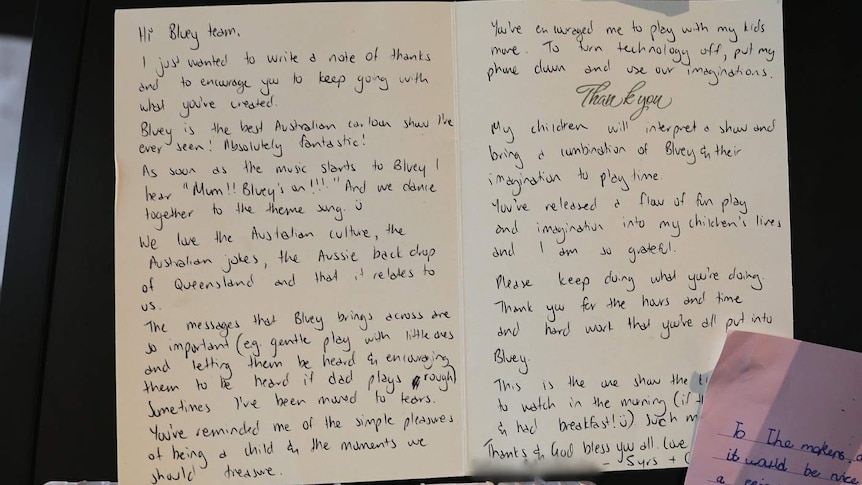 Hi Bluey team,
I just wanted to write a note of thanks
and to encourage you to keep going with
what you've created.
Bluey is the best Australian cartoon show I've
ever seen! Absolutely fantastic!
As soon as the music starts to Bluey I
hear "Mum!! Bluey's on!!!" And we dance
together to the theme song. ü
We love the Australian culture, the
Australian jokes, the Aussie back drop
of Queensland and that it relates to
us.
The messages that Bluey brings across are
so important (eg. gentle play with little ones
and letting them be heard & encouraging
them to be heard if dad plays rough)
Sometimes I've been moved to tears.
You've reminded me of the simple pleasures
of being a child & the moments we
should treasure.
You've encouraged me to play with my kids
more. To turn technology off, put my
phone down and use our imaginations.
Thank you
My children will interpret a show and
bring a combination of Bluey & their
imagination to play time.
You've released a flow of fun play
and imagination into my children's lives
and I am so grateful.
Please keep doing what you're doing.
Thank you for the hours and time
and hard work that you're all put into
Bluey.
This is the one show the
to watch in the morning (if
& had breakfast! ü) Such
Thanks & God bless you all. Love
- 5yrs +
To The makers
it would be nice
a